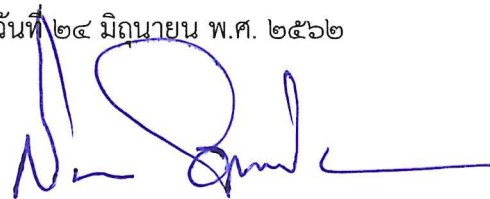 วันที่ ๒๔ มิถุนายน พ.ศ. ๒๕๖๒